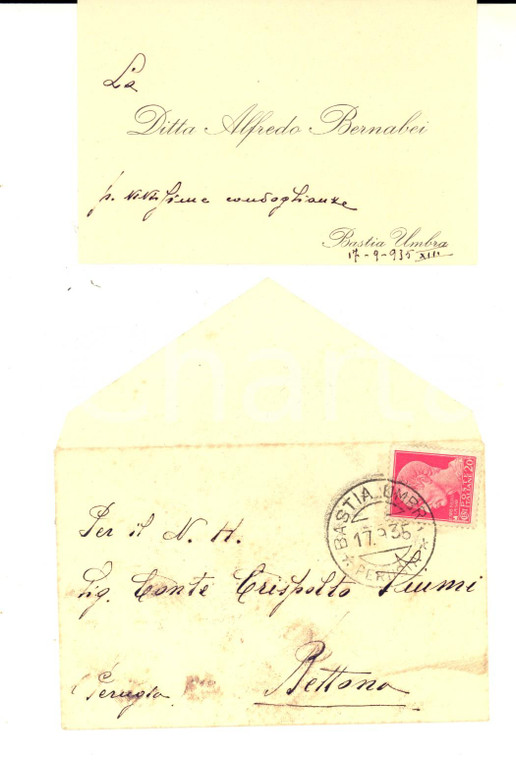 La
Ditta Alfredo Bernabei
p. vivissime condoglianze
Bastia Umbra
17-9-935 XIII
Charta
BASTIA UMBRA
17.9.35
PERUGIA
20
Per il N. H.
Sig. Conte Crispolto
Bettona
(Perugia